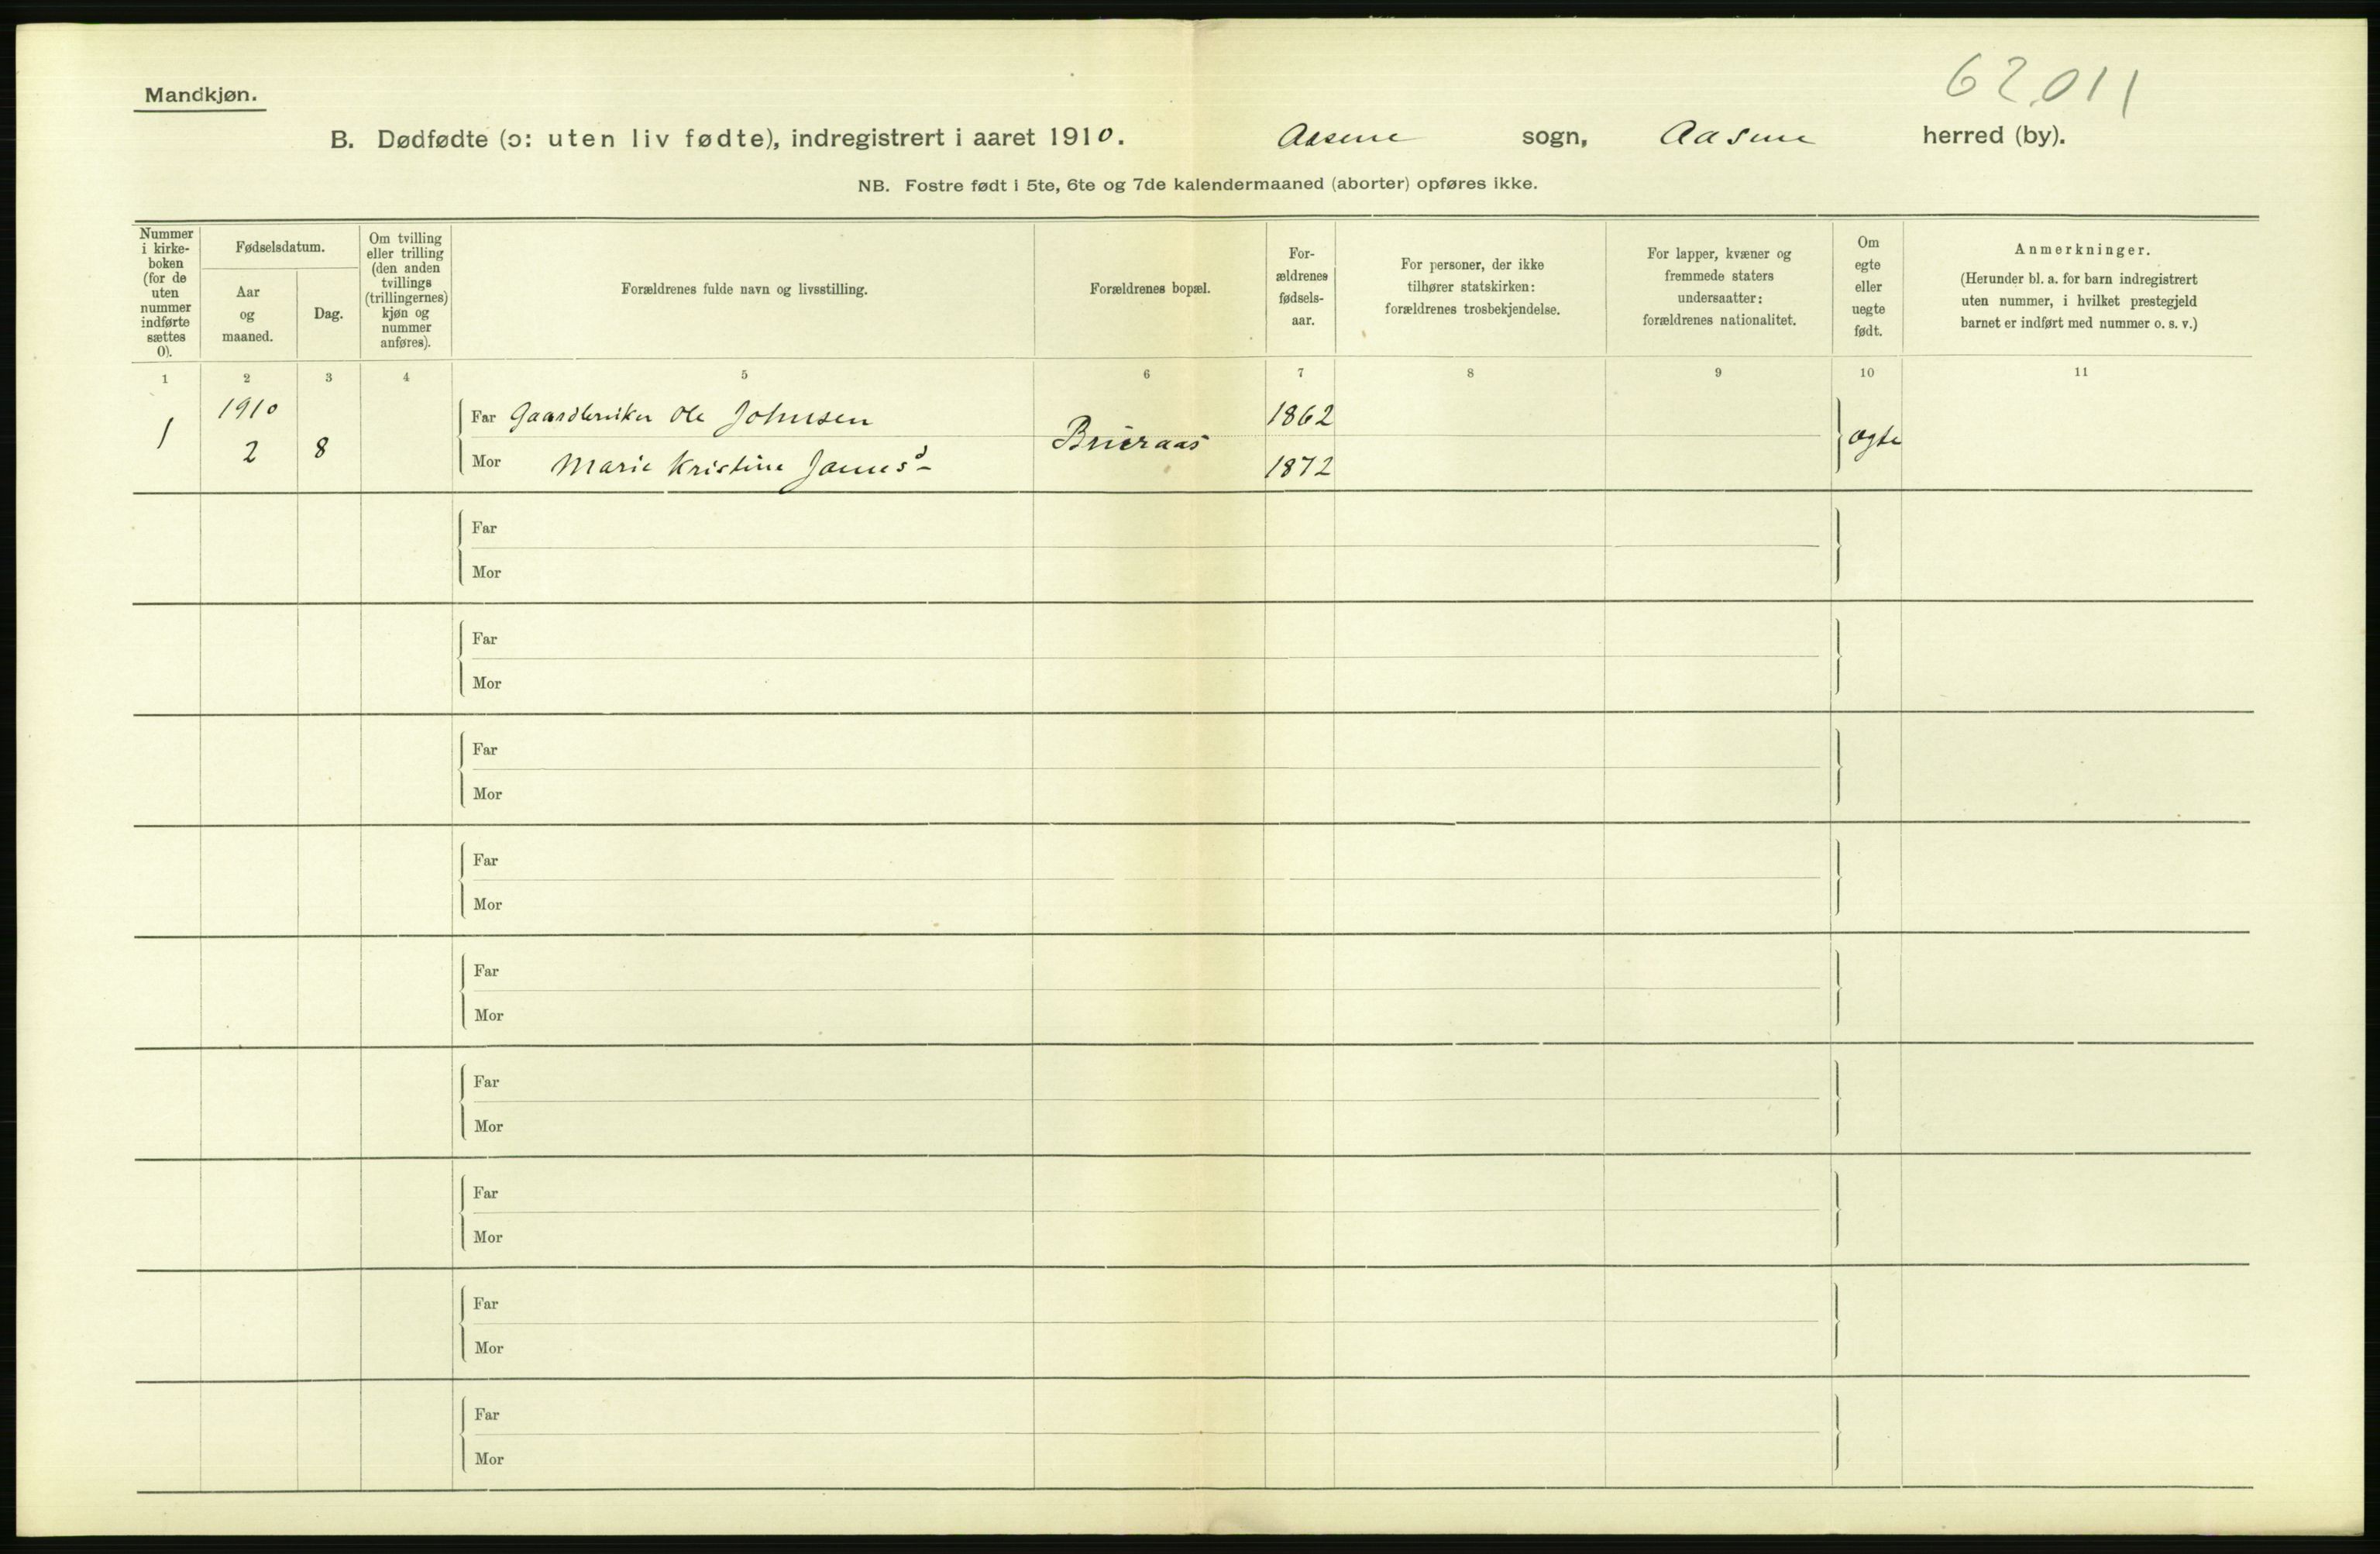 62011
Mandkjøn.
B. Dødfødte (ɔ: uten liv fødte), indregistrert i aaret 1910. Aasene sogn, Aasene herred (by).
NB. Fostre født i 5te, 6te og 7de kalendermaaned (aborter) opføres ikke.
Nummer
i kirke-
boken
(for de
uten
nummer
indførte
sættes
0).
Fødselsdatum.
Aar
og
maaned.
Dag.
Om tvilling
eller trilling
(den anden
tvillings
(trillingernes)
kjøn og
nummer
anføres).
Forældrenes fulde navn og livsstilling.
Forældrenes bopæl.
For-
ældrenes
fødsels-
aar.
For personer, der ikke
tilhører statskirken:
forældrenes trosbekjendelse.
For lapper, kvæner og
fremmede staters
undersaatter:
forældrenes nationalitet.
Om
egte
eller
uegte
født.
Anmerkninger.
(Herunder bl. a. for barn indregistrert
uten nummer, i hvilket prestegjeld
barnet er indført med nummer o. s. v.)
1 2 3 4 5 6 7 8 9 10 11
1910
1 2 8
Far Gaardbruker Ole Johnsen 1862
Mor Marie Kristine 1872
ægte
Far
Mor
Far
Mor
Far
Mor
Far
Mor
Far
Mor
Far
Mor
Far
Mor
Far
Mor
Far
Mor